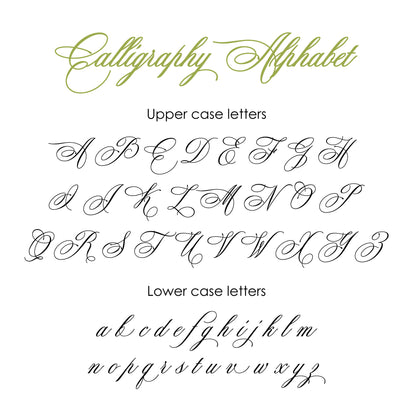 Calligraphy Alphabet
Upper case letters
A B C D E F G H
I J K L M N O P
Q R S T U V W X Y Z
Lower case letters
a b c d e f g h i j k l m
n o p q r s t u v w x y z